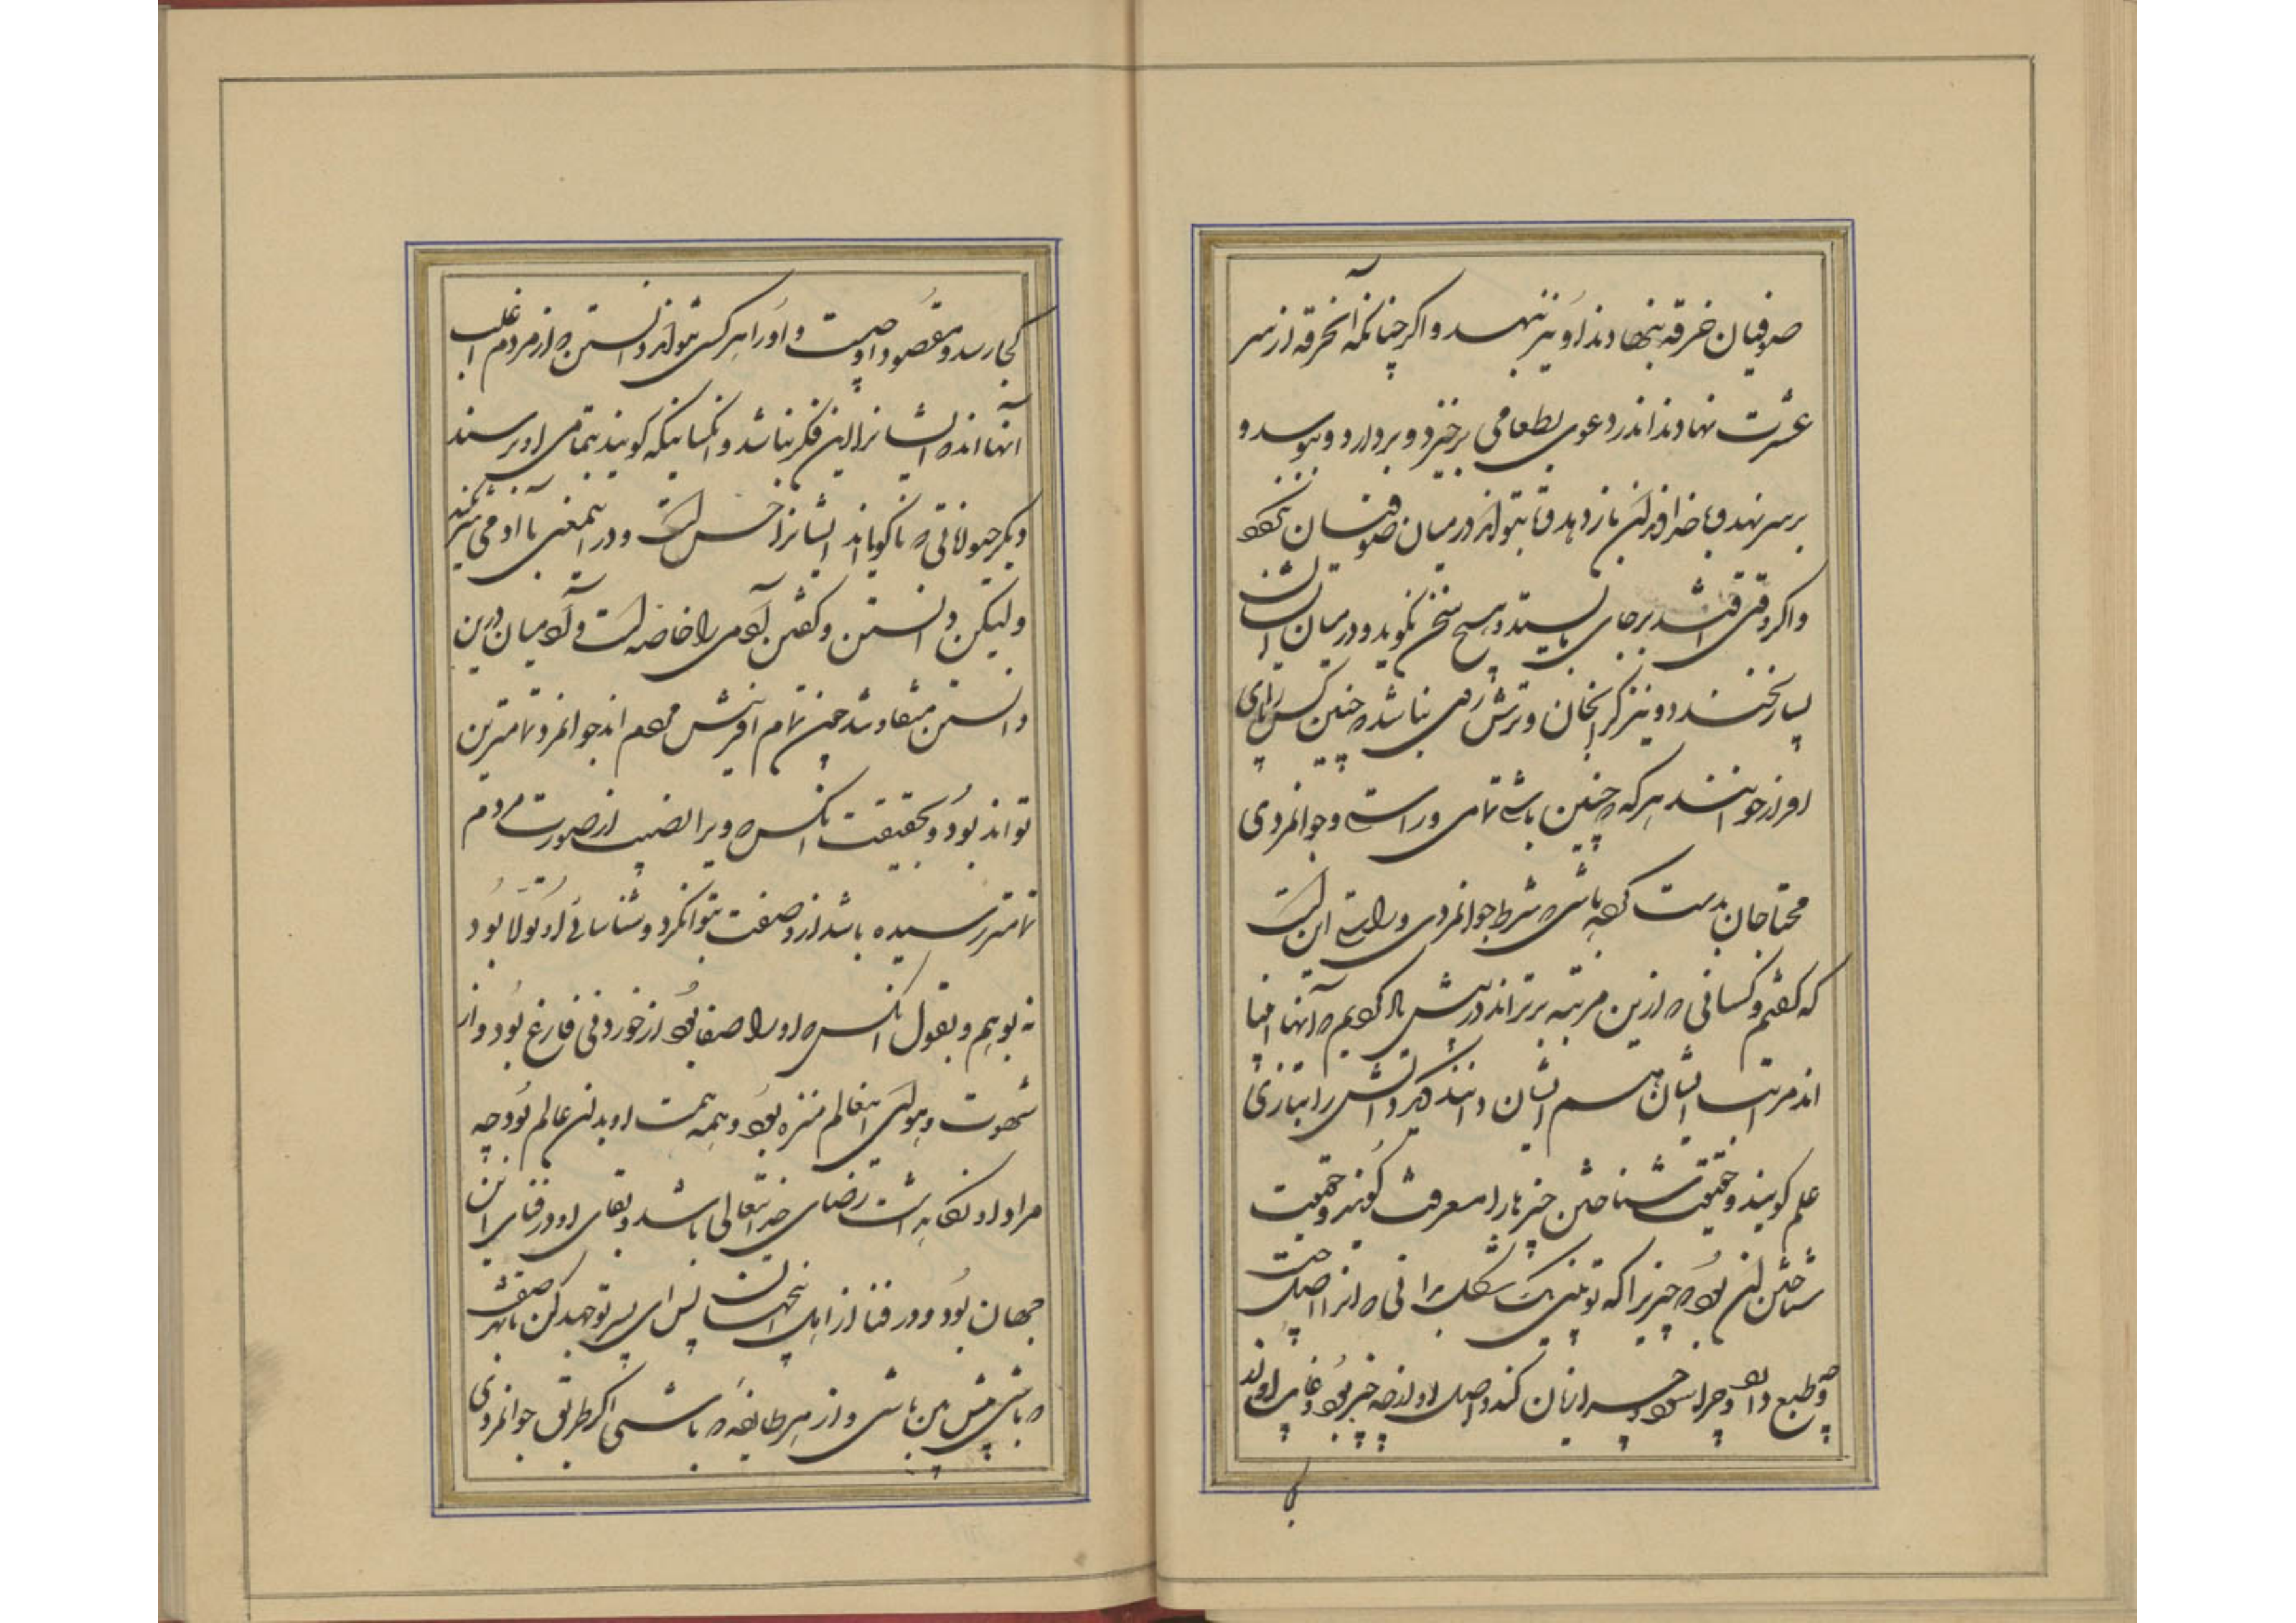 صوفیان خرقه بنهادند او نیز بنهد و اگر چنانکه آنخرقه از سر
عشرت نهادند اندر دعوی بطعامی برخیزد و بردارد و ببوسد و
بر سر نهد و با خداوند آن باز دهد و تا بتواند در میان صوفیان
و اگر وقتی افتد بر جای بایستد و هیچ سخن نگوید و در میان ایشان
بسیار نخندد و نیز گرانجان و ترش روی نباشد که چنین کس را پای
افزار خوانند هر که چنین باشد تمامی و راستی و جوانمردی
محتاجان بدست باشی که شرط جوانمردی و راستی این است
که گفتم و کسانی که ازین مرتبه برترند در پیش یاد کردیم که آنها انبیا
اند مراتب ایشان هم ایشان دانند دیگر دانش را بتازی
علم گویند و حقیقت شناختن چیزها را معرفت گویند و حقیقت
شناختن آن بود که چیزیرا که تو بینی بشکل بدانی که آنرا اصل چیست
و چه طبع دارد و چرا سود و چرا زیان کند و اصل او از چه چیز بود و غایت او تا
بکجا رسد و مقصود او چیست و او را هر کسی بتواند دانستن که از مردم اغلب
آنها اند که ایشانرا این فکر نباشد و آنکسانیکه گویند بتمامی او برسند
دیگر حیواناتی که ناگویااند ایشانرا حس است و در اینمعنی با آدمی شریکند
ولیکن دانستن و گفتن آدمی را خاصه است و آدمیان درین
دانستن متفاوتند چون تمام آفرینش مردم اند جوانمرد تمامترین
تواند بود و بحقیقت آنکس که ویرا نصیب از صورت مردم
تمامتر رسیده باشد از صفت بتوانگرد و شناسائی او تولا بود
نه بوهم و بقول آنکس که او را صفا بود از خوردنی فارغ بود و از
شهوت و هوای اینعالم منزه بود و همه همت او بدان عالم بود چه
مراد او نگاهداشت رضای خدایتعالی باشد و بقای او در فنای این
جهان بود و در فنا از اهل اینجهان پس ای پسر تو جهد کن تا بهر صفت
که باشی پیش بین باشی و از هر طایفه که باشی اگر طریق جوانمردی